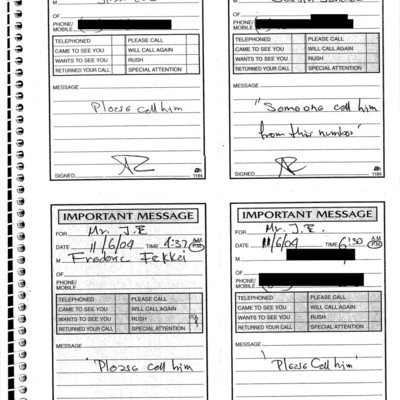 M
OF
PHONE/
MOBILE
TELEPHONED PLEASE CALL
CAME TO SEE YOU WILL CALL AGAIN
WANTS TO SEE YOU RUSH
RETURNED YOUR CALL SPECIAL ATTENTION
MESSAGE
Please call him
SIGNED 1184
M
OF
PHONE/
MOBILE
TELEPHONED PLEASE CALL
CAME TO SEE YOU WILL CALL AGAIN
WANTS TO SEE YOU RUSH
RETURNED YOUR CALL SPECIAL ATTENTION
MESSAGE
"Someone call him
from this number"
SIGNED 1184
IMPORTANT MESSAGE
FOR Mr. J.E.
DATE 11/6/04 TIME 4:37 AM PM
M Frederic Fekkei
OF
PHONE/
MOBILE
TELEPHONED PLEASE CALL
CAME TO SEE YOU WILL CALL AGAIN
WANTS TO SEE YOU RUSH
RETURNED YOUR CALL SPECIAL ATTENTION
MESSAGE
"Please call him
IMPORTANT MESSAGE
FOR Mr. J.E.
DATE 11/6/04 TIME 6:30 AM PM
M
OF
PHONE/
MOBILE
TELEPHONED PLEASE CALL
CAME TO SEE YOU WILL CALL AGAIN
WANTS TO SEE YOU RUSH
RETURNED YOUR CALL SPECIAL ATTENTION
MESSAGE
"Please Call him"